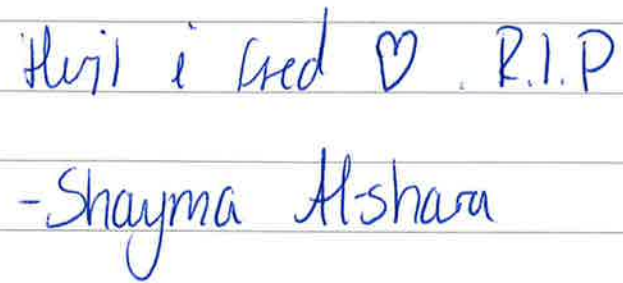 Hvil i fred ♡. R.I.P
-Shayma Al-shara